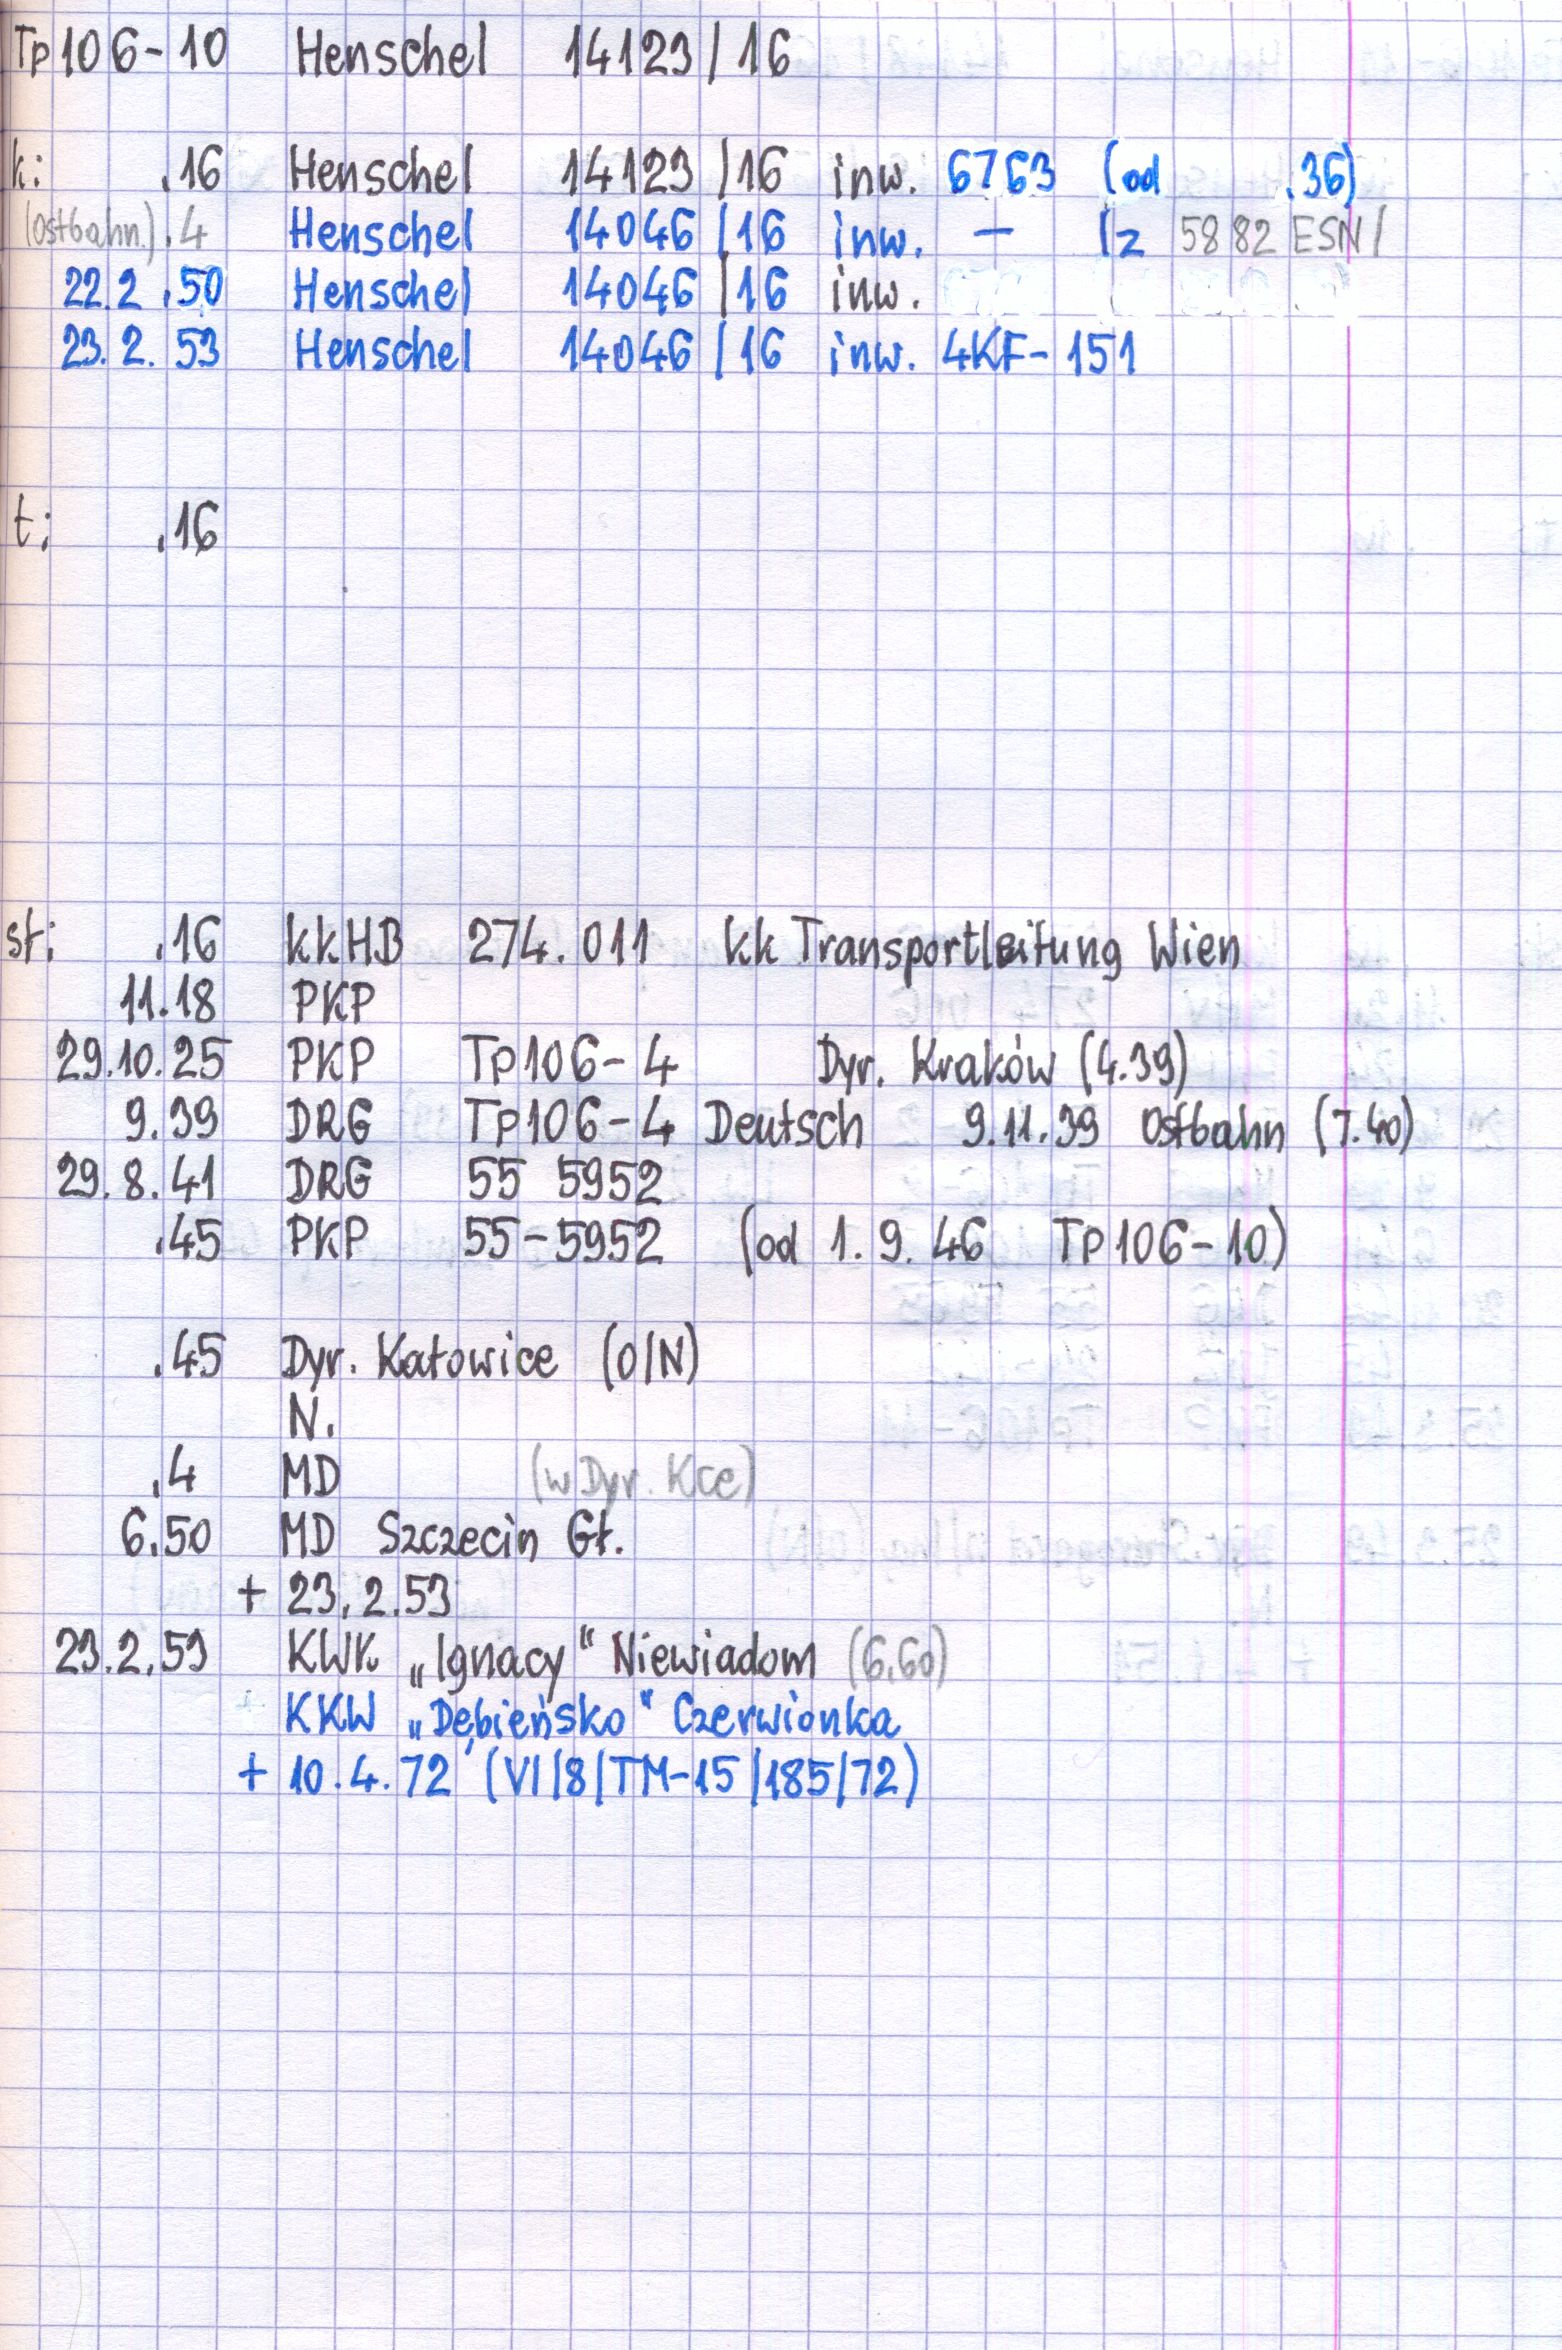 Tp106-10 Henschel 14123/16
k: .16 Henschel 14123/16 inw. 6763 (od .36)
(Ostbahn) .4 Henschel 14046/16 inw. — /z 5882 ESN/
22.2.50 Henschel 14046/16 inw.
23.2.53 Henschel 14046/16 inw. 4KF-151
t: .16
st: .16 kkHB 274.011 kk Transportleitung Wien
11.18 PKP
29.10.25 PKP Tp106-4 Dyr. Kraków (4.39)
9.39 DRG Tp106-4 Deutsch 9.11.39 Ostbahn (7.40)
29.8.41 DRG 55 5952
.45 PKP 55-5952 (od 1.9.46 Tp106-10)
.45 Dyr. Katowice (O/N)
N.
.4 MD (w Dyr. Kce)
6.50 MD Szczecin Gł.
+ 23.2.53
23.2.53 KWK „Ignacy" Niewiadom (6.60)
KKW „Dębieńsko" Czerwionka
+ 10.4.72 (VI/8/TM-15/185/72)